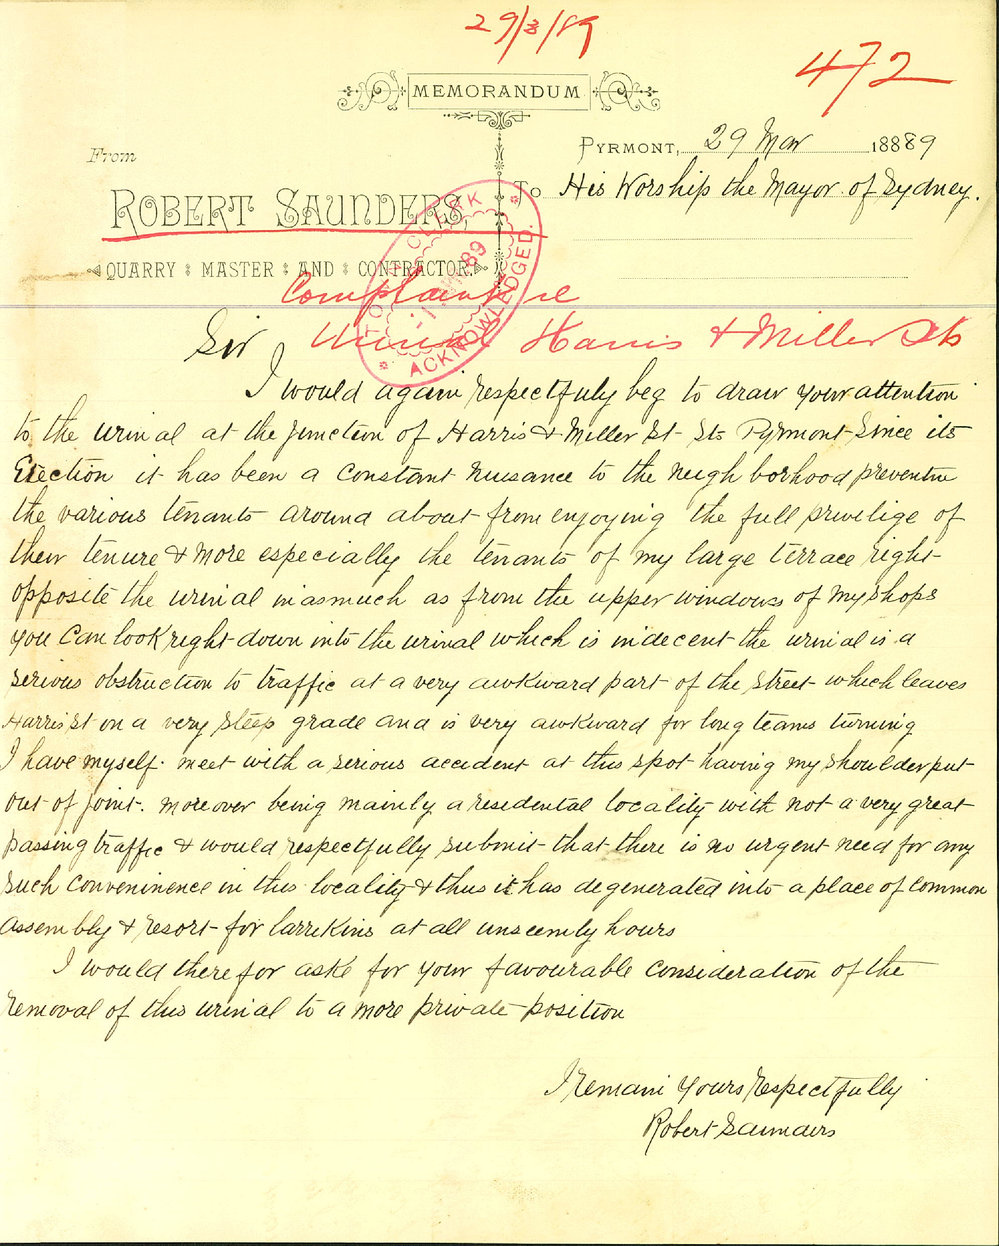 29/3/89
472
MEMORANDUM
PYRMONT, 29 Mar 18889
From
To His Worship the Mayor of Sydney.
ROBERT SAUNDERS,
QUARRY MASTER AND CONTRACTOR.
TOWN CLERK
89
ACKNOWLEDGED.
Complaint re
Urinal Harris & Miller Sts
Sir
I would again respectfuly beg to draw your attention
to the urinal at the junction of Harris & Miller St Sts Pyrmont Since its
Erection it has been a constant nuisance to the neighborhood preventing
the various tenants around about from enjoying the full privilige of
their tenure & more especially the tenants of my large terrace right
opposite the urinal inasmuch as from the upper windows of my shops
you can look right down into the urinal which is indecent the urinal is a
serious obstruction to traffic at a very awkward part of the street which leaves
Harris St on a very steep grade and is very awkward for long teams turning
I have myself meet with a serious accident at this spot having my shoulder put
out of joint. moreover being mainly a residental locality with not a very great
passing traffic & would respectfully submit that there is no urgent need for any
such conveninence in this locality & thus it has degenerated into a place of common
assembly & resort for larrikins at all unseemly hours
I would therefor aske for your favourable consideration of the
removal of this urinal to a more private position
I remain yours respectfully
Robert Saunders